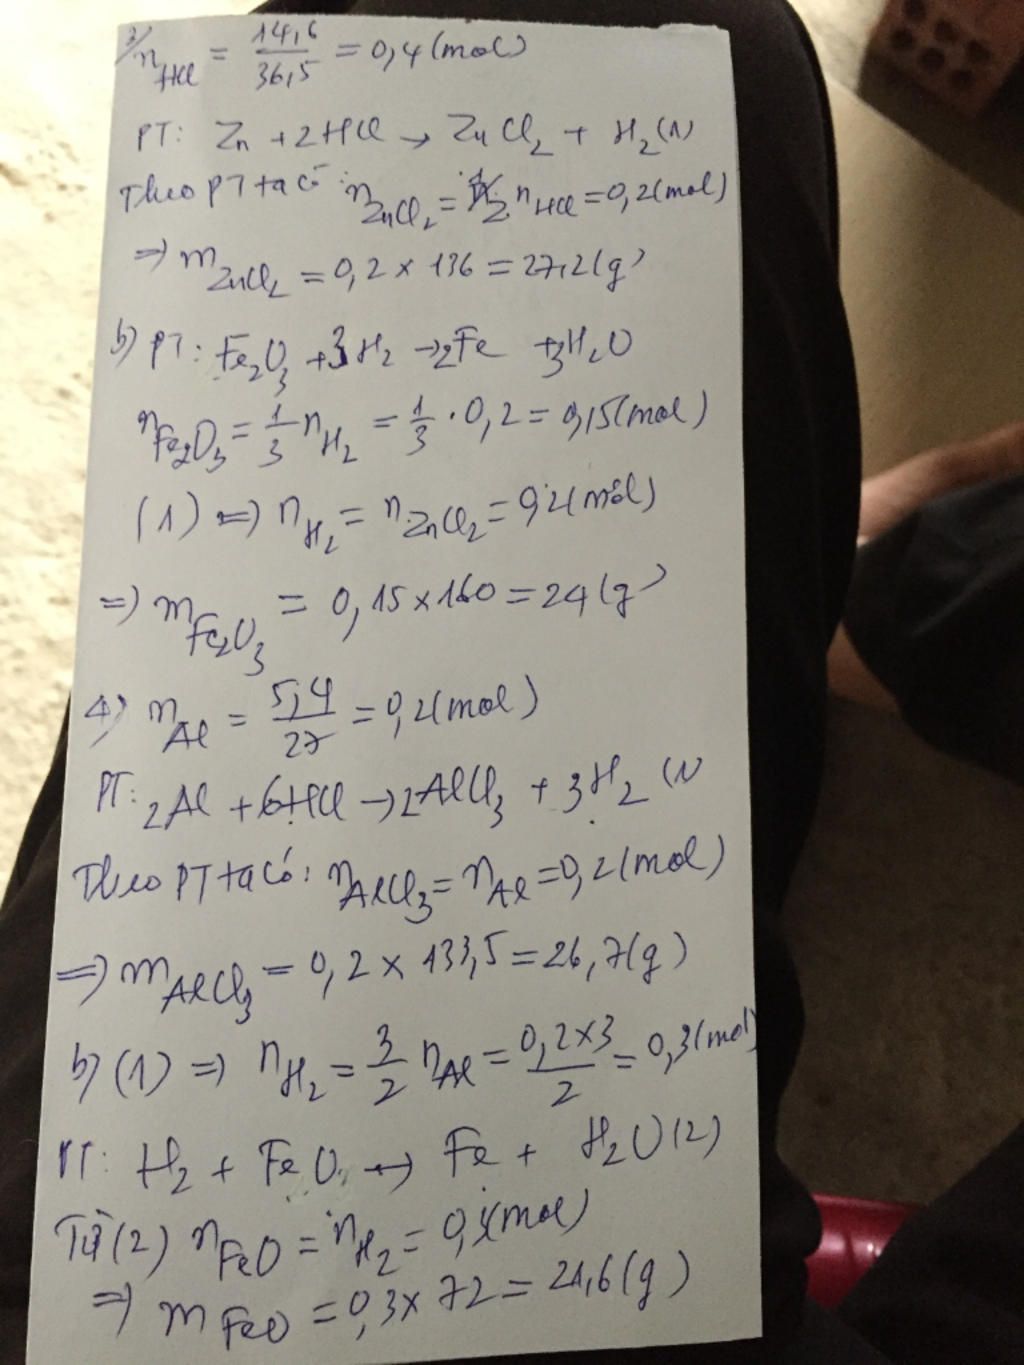 3/ n HCl = 14,6 / 36,5 = 0,4 (mol)
PT: Zn + 2HCl → ZnCl₂ + H₂ (1)
Theo PT ta có: n ZnCl₂ = 1/2 n HCl = 0,2 (mol)
=> m ZnCl₂ = 0,2 × 136 = 27,2 (g)
b) PT: Fe₂O₃ + 3H₂ → 2Fe + 3H₂O
n Fe₂O₃ = 1/3 n H₂ = 1/3 · 0,2 = 0,15 (mol)
(1) => n H₂ = n ZnCl₂ = 0,2 (mol)
=> m Fe₂O₃ = 0,15 × 160 = 24 (g)
4) n Al = 5,4 / 27 = 0,2 (mol)
PT: 2Al + 6HCl → 2AlCl₃ + 3H₂ (1)
Theo PT ta có: n AlCl₃ = n Al = 0,2 (mol)
=> m AlCl₃ = 0,2 × 133,5 = 26,7 (g)
b) (1) => n H₂ = 3/2 n Al = 0,2×3 / 2 = 0,3 (mol)
PT: H₂ + FeO → Fe + H₂O (2)
Từ (2) n FeO = n H₂ = (mol)
=> m FeO = 0,3 × 72 = 21,6 (g)